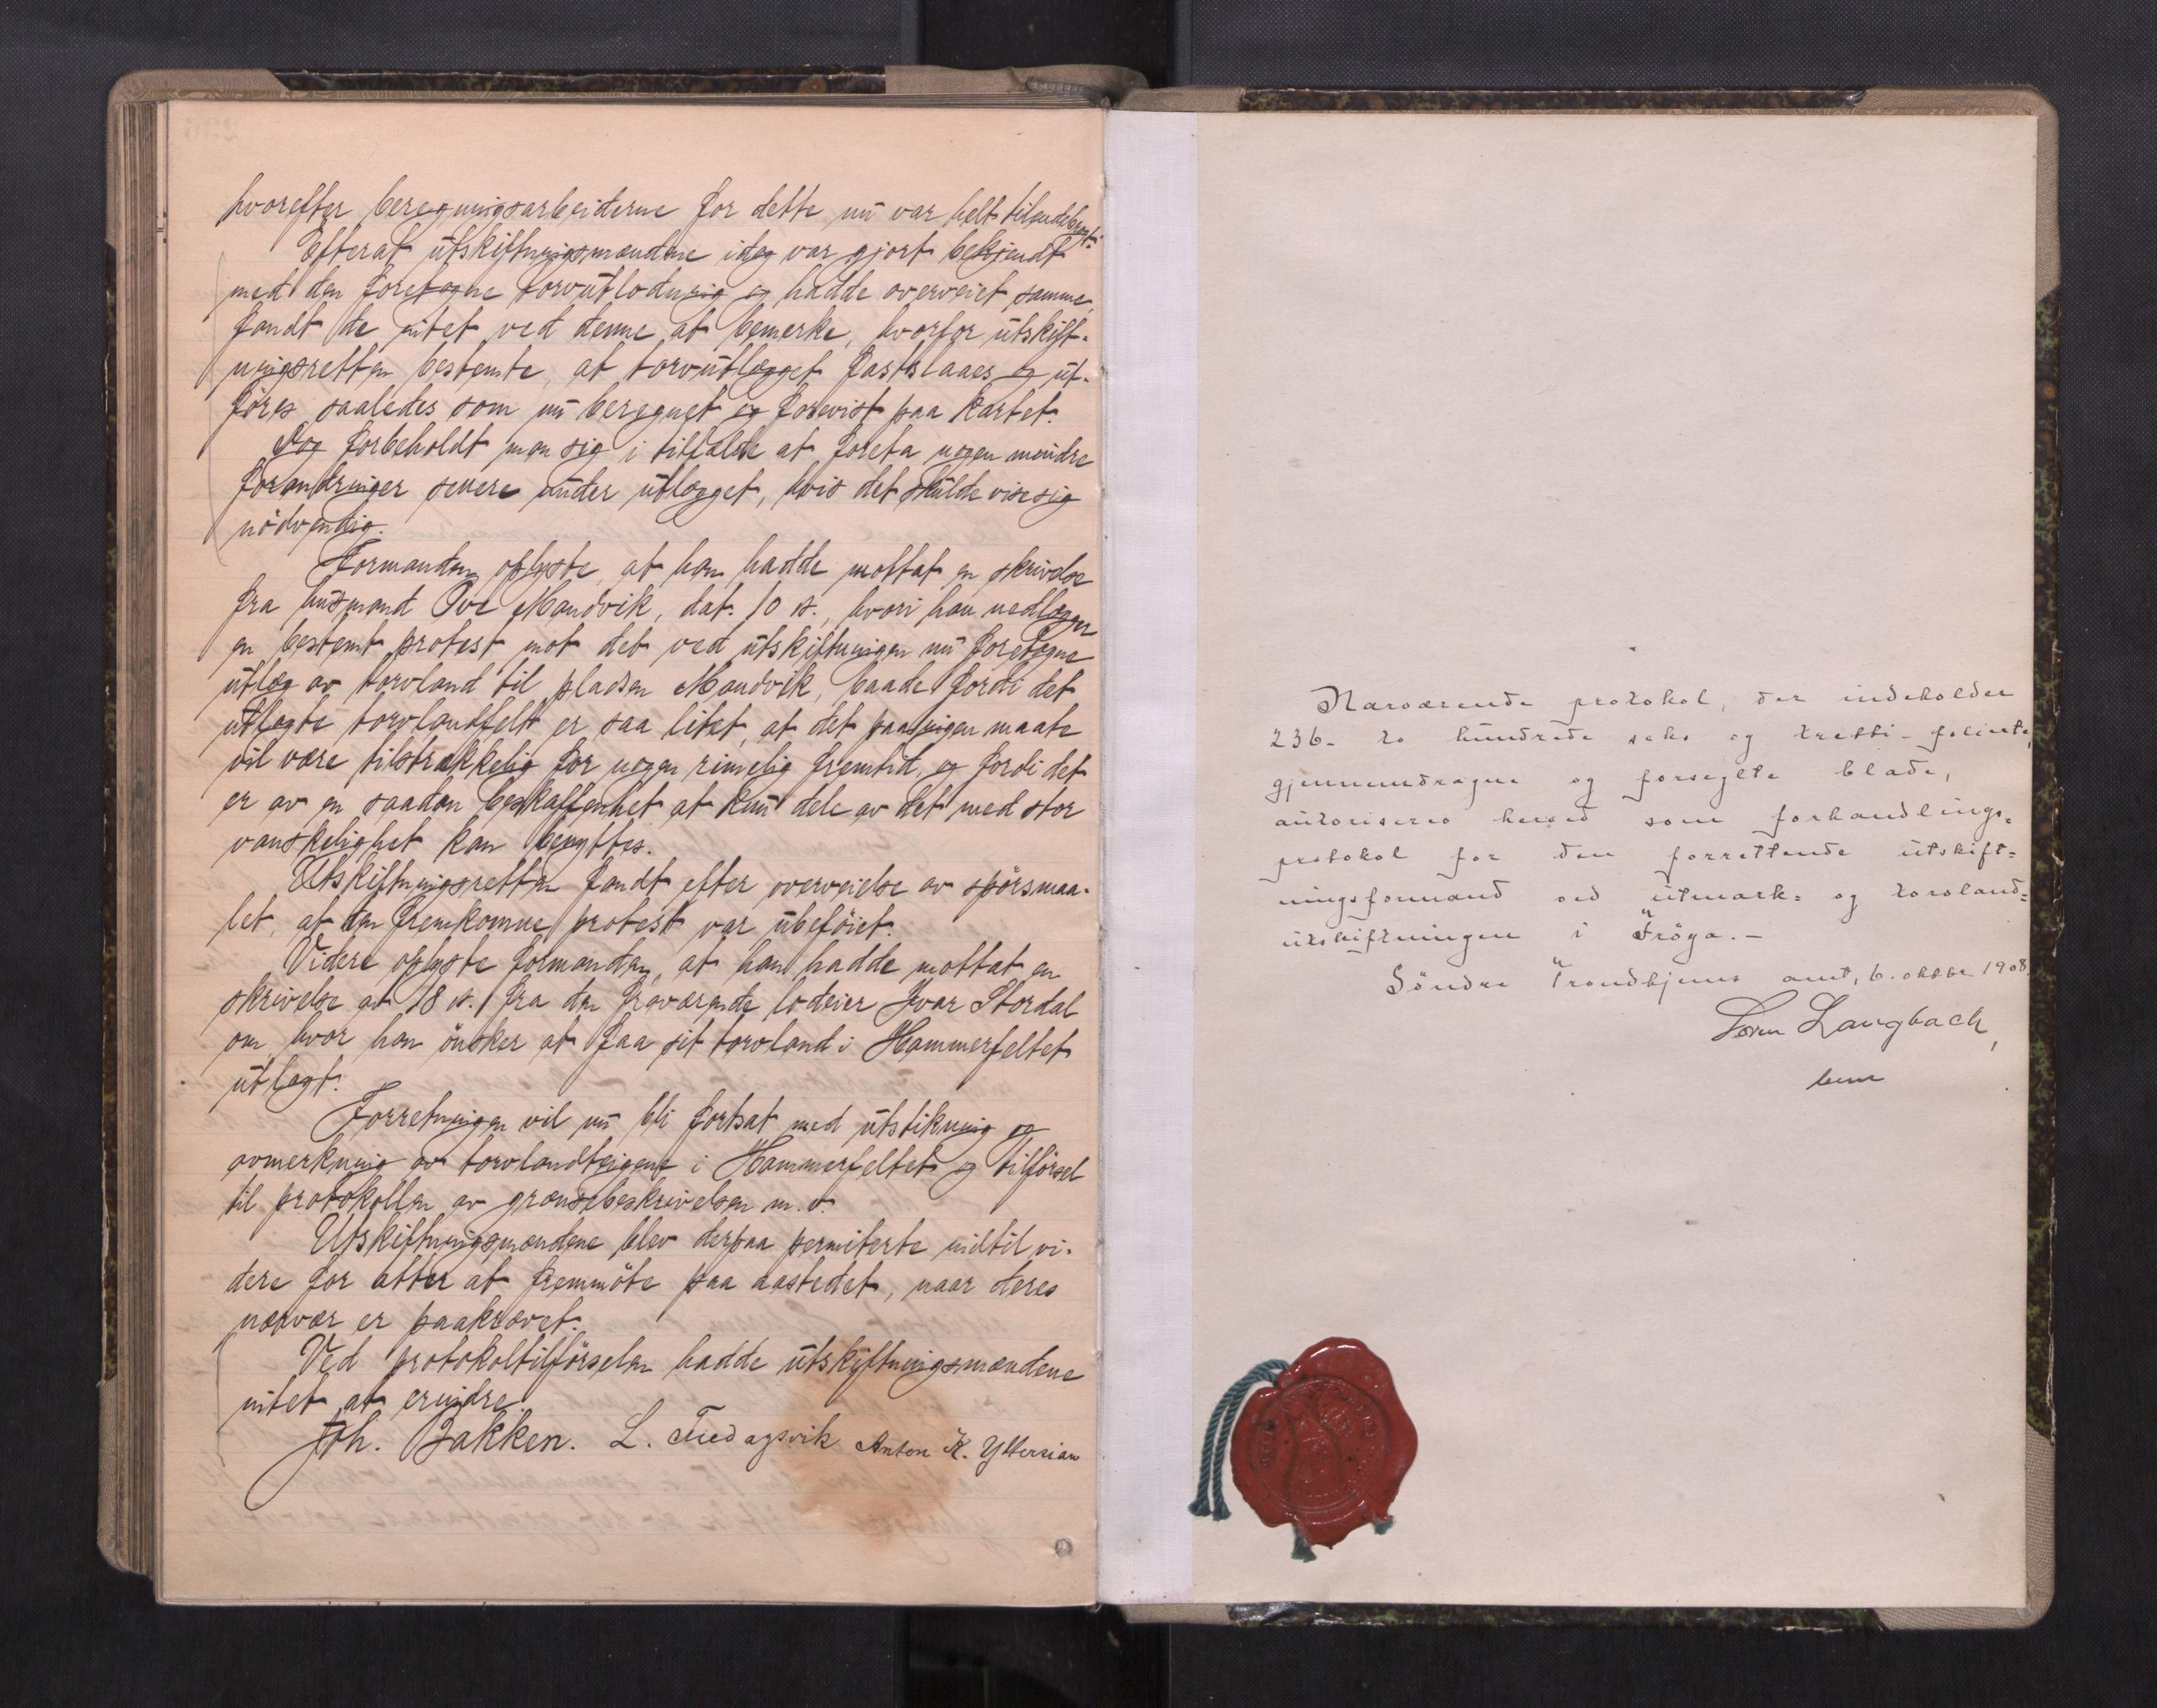 hvorefter beregningsarbeiderne for dette nu var helt tilendebragt.
Efterat utskiftningsmændene idag var gjort bekjendt
med den foretagne torvutlodning og hadde overveiet samme,
fandt de intet ved denne at bemerke, hvorfor utskift-
ningsretten bestemte, at torvutlægget fastslaaes og ut-
föres saaledes som nu beregnet og forevist paa kartet.
Dog forbeholdt man sig i tilfælde at foreta nogen mindre
forandringer senere under utlægget, hvis det skulde vise sig
nödvendig.
Formanden oplyste, at han hadde mottat en skrivelse
fra husmand Ove Mandvik, dat. 10 ds., hvori han nedlægger
en bestemt protest mot det ved utskiftningen nu foretagne
utlæg av torvland til pladsen Mandvik, baade fordi det
utlagte torvlandfelt er saa litet, at det paa ingen maate
vil være tilstrækkelig for nogen rimelig fremtid, og fordi det
er av en saadan beskaffenhet at kun dele av det med stor
vanskelighet kan benyttes.
Utskiftningsretten fandt efter overveielse av spörsmaa-
let, at den fremkomne protest var ubeföiet.
Videre oplyste formanden, at han hadde mottat en
skrivelse av 18 ds. fra den fraværende lodeier Ivar Stordal
om hvor han önsker at faa sit torvland i Hammerfeltet
utlagt.
Forretningen vil nu bli fortsat med utstikning og
avmerkning av torvlandteigene i Hammerfeltet og tilförsel
til protokollen av grænsebeskrivelsen m. v.
Utskiftningsmændene blev derpaa permiterte indtil vi-
dere for atter at fremmöte paa aastedet, naar deres
nærvær er paakrævet.
Ved protokoltilförselen hadde utskiftningsmændene
intet at erindre.
Joh. Bakken. L. Anton K.
Nærværende protokol, der indeholder
236 - to hundrede seks og tretti - folierte,
gjennemdragne og forseglte blade,
autoriseres herved som forhandlings-
protokol for den forrettende utskift-
ningsformand ved utmark- og torvland-
utskiftningen i Fröya. -
Söndre Trondhjems amt, 6. oktbr 1908.
Langbach,